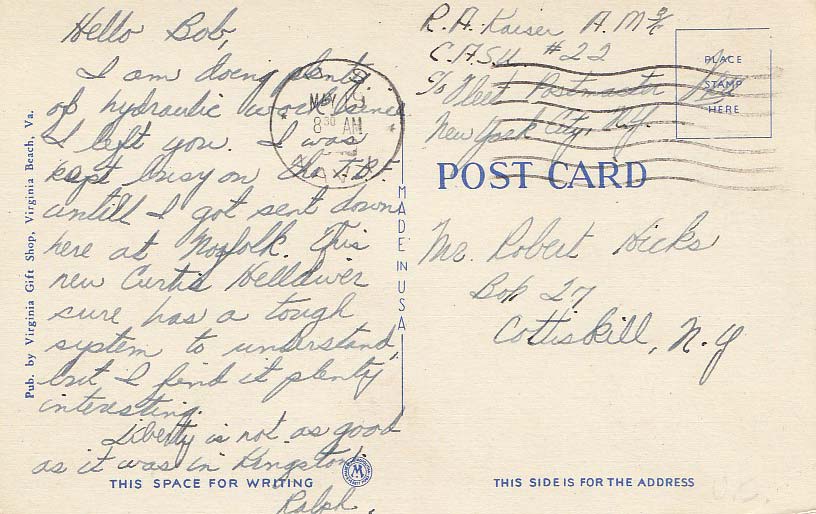 Hello Bob,
I am doing plenty
of hydraulic work since
I left you. I was
kept busy on the
untill I got sent down
here at Norfolk. This
new Curtis Helldiver
sure has a tough
system to understand,
but I find it plenty
interesting.
Liberty is not as good
as it was in Kingston.
Ralph.
THIS SPACE FOR WRITING
Pub. by Virginia Gift Shop, Virginia Beach, Va.
MADE IN USA
MAY
8 30 AM
R. A. Kaiser A.M 3/c
C.A.S.U #22
c/o Fleet Postmaster
New York City, N.Y.
PLACE
STAMP
HERE
POST CARD
Mr. Robert Hicks
Box 27
Cottiskill, N.Y
THIS SIDE IS FOR THE ADDRESS